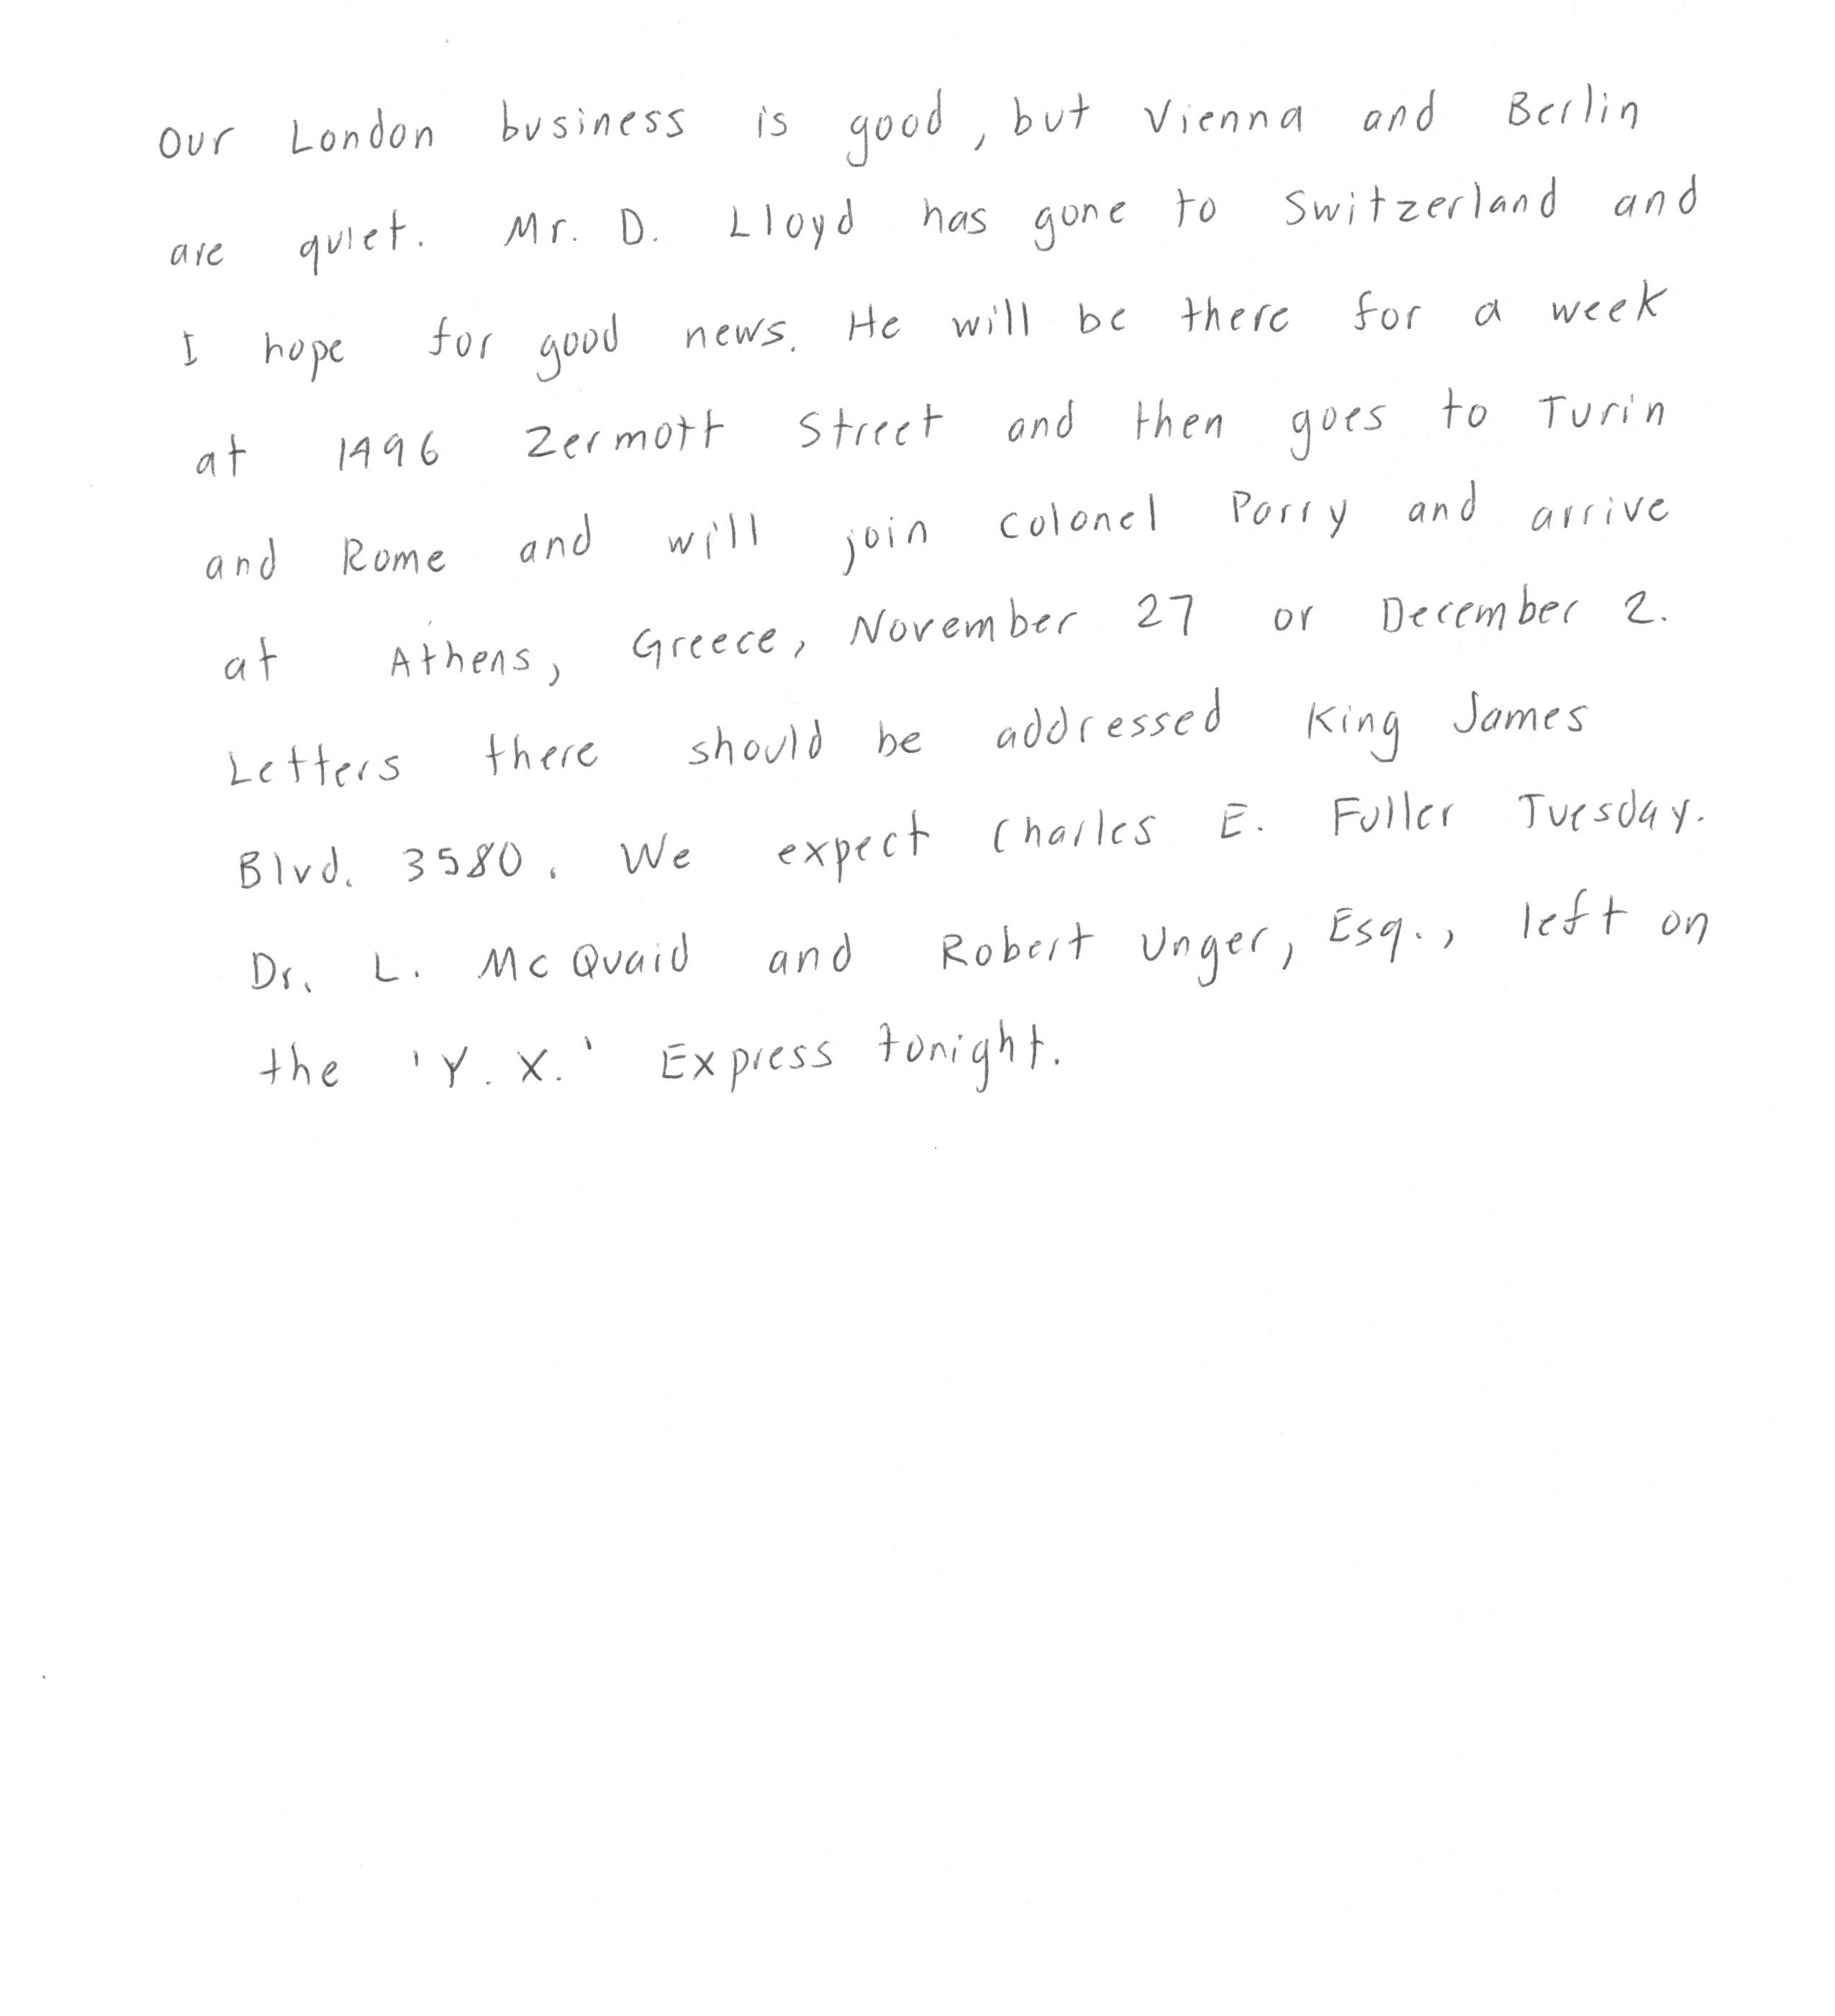 Our London business is good, but Vienna and Berlin
are quiet. Mr. D. Lloyd has gone to Switzerland and
I hope for good news. He will be there for a week
at 1996 Zermott Street and then goes to Turin
and Rome and will join Colonel Parry and arrive
at Athens, Greece, November 27 or December 2.
Letters there should be addressed King James
Blvd. 3580. We expect Charles E. Fuller Tuesday.
Dr. L. McQuaid and Robert Unger, Esq., left on
the 'Y. X.' Express tonight.